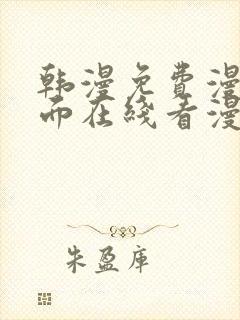 韩漫免费漫
而在线看漫
朱盈库